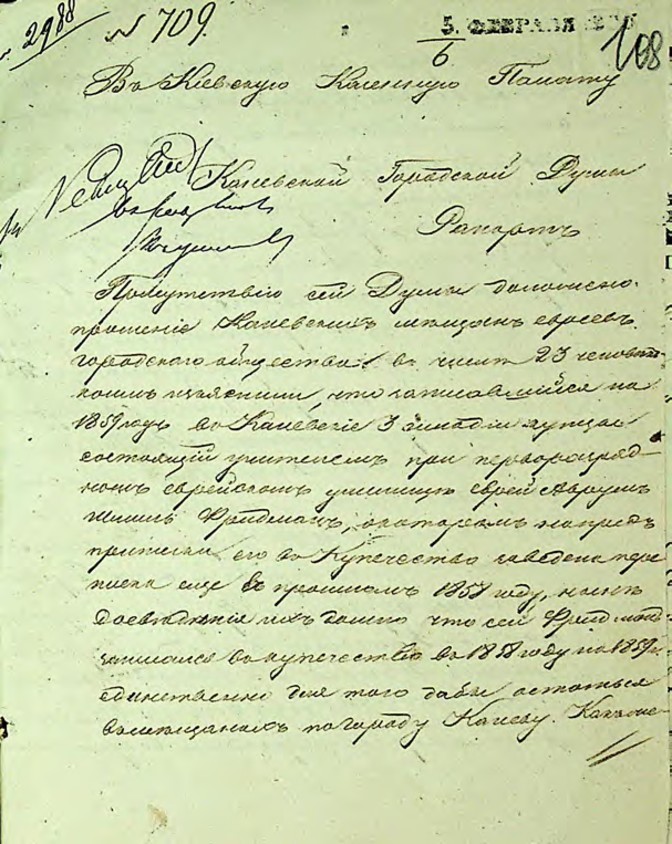 2988
№ 709.
5. ФЕВРАЛЯ
6
108
Въ Кіевскую Казенную Палату
Каневской Городской Думы
Рапортъ
Присутствію сей Думы
прошеніе Каневскихъ мѣщанъ евреевъ
городского общества въ числѣ 23 человѣкъ
изъяснили, что записавшійся на
1859 годъ въ Каневскіе 3 гильдіи купцы
состоящій учителемъ при перворазряд-
номъ еврейскомъ училищѣ еврей Аврумъ
Фридманъ, о которомъ
приписки его въ купечество заведена пере
писка еще въ прошломъ 1858 году, нынѣ
дошло что сей Фридманъ
записался въ купечество въ 1858 году на 1859
единственно для того дабы остаться
по городу Каневу.